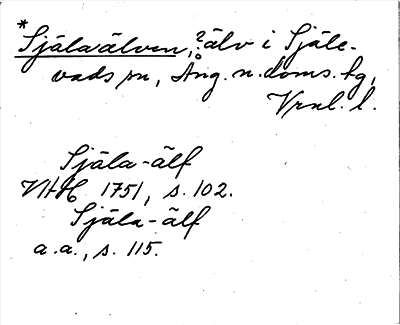 *Själaälven, ? älv i Själe-
vads sn, Ång. n. doms. fg,
Vrnl. l.
Själa-älf
VHH 1751, s. 102.
Själa-älf
a.a., s. 115.